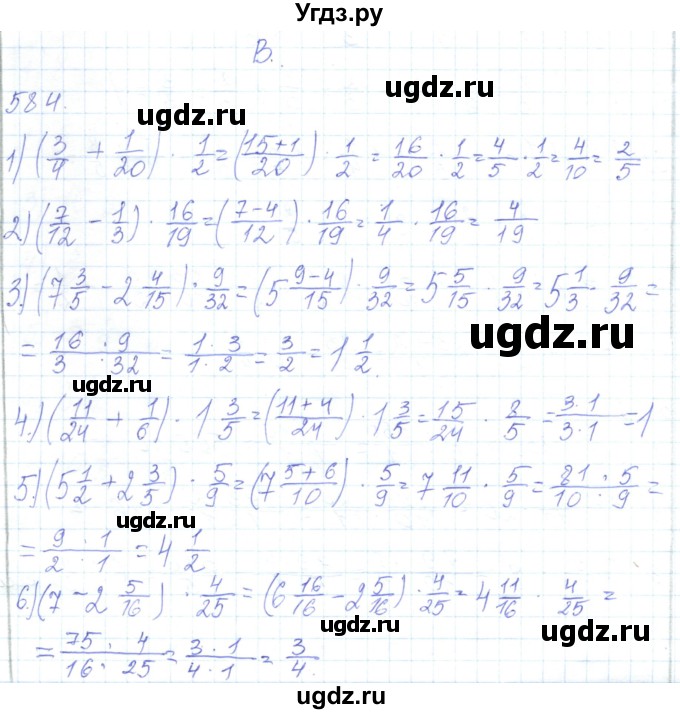 Угдз.ру
В.
ugdz.ru
584.
ugdz.ru
1) (3/4 + 1/20) · 1/2 = ((15+1)/20) · 1/2 = 16/20 · 1/2 = 4/5 · 1/2 = 4/10 = 2/5
ugdz.ru
ugdz.ru
2) (7/12 - 1/3) · 16/19 = ((7-4)/12) · 16/19 = 1/4 · 16/19 = 4/19
3.) (7 3/5 - 2 4/15) · 9/32 = (5 (9-4)/15) · 9/32 = 5 5/15 · 9/32 = 5 1/3 · 9/32 =
ugdz.ru
= (16 · 9)/(3 · 32) = (1 · 3)/(1 · 2) = 3/2 = 1 1/2.
ugdz.ru
ugdz.ru
4.) (11/24 + 1/6) · 1 3/5 = ((11+4)/24) · 1 3/5 = 15/24 · 8/5 = (3·1)/(3·1) = 1
ugdz.ru
5.) (5 1/2 + 2 3/5) · 5/9 = (7 (5+6)/10) · 5/9 = 7 11/10 · 5/9 = (81 · 5)/(10 · 9) =
ugdz.ru
ugdz.ru
= (9 · 1)/(2 · 1) = 4 1/2
ugdz.ru
6.) (7 - 2 5/16) · 4/25 = (6 16/16 - 2 5/16) · 4/25 = 4 11/16 · 4/25 =
ugdz.ru
ugdz.ru
= (75 · 4)/(16 · 25) = (3·1)/(4·1) = 3/4.
ugdz.ru
ugdz.ru